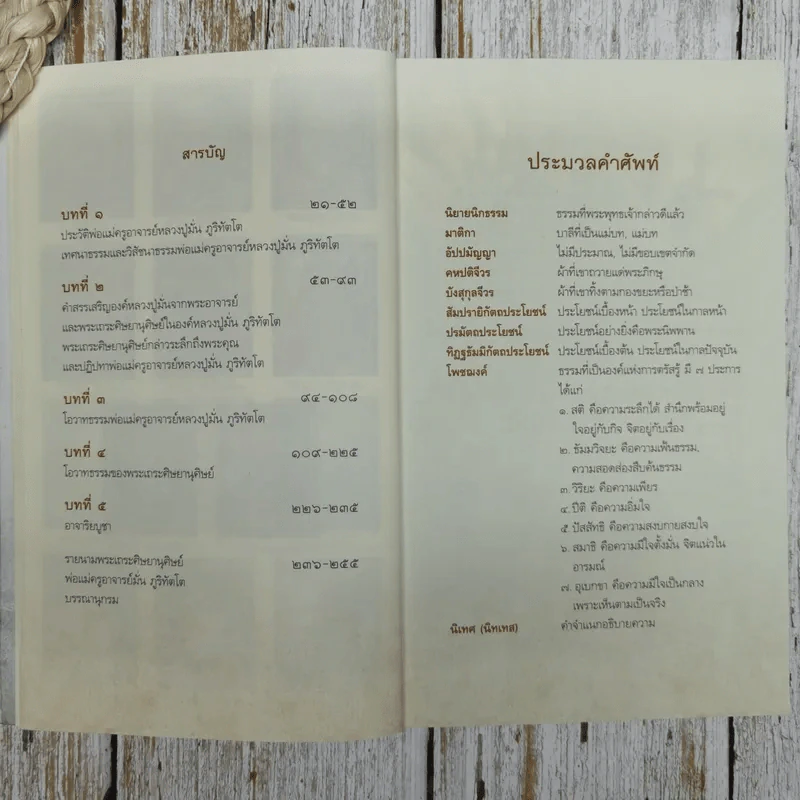 สารบัญ
บทที่ ๑ ๒๑-๕๒
ประวัติพ่อแม่ครูอาจารย์หลวงปู่มั่น ภูริทัตโต
เทศนาธรรมและวิสัชนาธรรมพ่อแม่ครูอาจารย์หลวงปู่มั่น ภูริทัตโต
บทที่ ๒ ๕๓-๙๓
คำสรรเสริญองค์หลวงปู่มั่นจากพระอาจารย์
และพระเถระศิษยานุศิษย์ในองค์หลวงปู่มั่น ภูริทัตโต
พระเถระศิษยานุศิษย์กล่าวระลึกถึงพระคุณ
และปฏิปทาพ่อแม่ครูอาจารย์หลวงปู่มั่น ภูริทัตโต
บทที่ ๓ ๙๔-๑๐๘
โอวาทธรรมพ่อแม่ครูอาจารย์หลวงปู่มั่น ภูริทัตโต
บทที่ ๔ ๑๐๙-๒๒๕
โอวาทธรรมของพระเถระศิษยานุศิษย์
บทที่ ๕ ๒๒๖-๒๓๕
อาจาริยบูชา
รายนามพระเถระศิษยานุศิษย์ ๒๓๖-๒๕๕
พ่อแม่ครูอาจารย์มั่น ภูริทัตโต
บรรณานุกรม
ประมวลคำศัพท์
นิยายนิกธรรม ธรรมที่พระพุทธเจ้ากล่าวดีแล้ว
มาติกา บาลีที่เป็นแม่บท, แม่บท
อัปปมัญญา ไม่มีประมาณ, ไม่มีขอบเขตจำกัด
คหปติจีวร ผ้าที่เขาถวายแด่พระภิกษุ
บังสุกุลจีวร ผ้าที่เขาทิ้งตามกองขยะหรือป่าช้า
สัมปรายิกัตถประโยชน์ ประโยชน์เบื้องหน้า ประโยชน์ในกาลหน้า
ปรมัตถประโยชน์ ประโยชน์อย่างยิ่งคือพระนิพพาน
ทิฏฐธัมมิกัตถประโยชน์ ประโยชน์เบื้องต้น ประโยชน์ในกาลปัจจุบัน
โพชฌงค์ ธรรมที่เป็นองค์แห่งการตรัสรู้ มี ๗ ประการ
ได้แก่
๑. สติ คือความระลึกได้ สำนึกพร้อมอยู่
ใจอยู่กับกิจ จิตอยู่กับเรื่อง
๒. ธัมมวิจยะ คือความเฟ้นธรรม,
ความสอดส่องสืบค้นธรรม
๓. วิริยะ คือความเพียร
๔. ปีติ คือความอิ่มใจ
๕. ปัสสัทธิ คือความสงบกายสงบใจ
๖. สมาธิ คือความมีใจตั้งมั่น จิตแน่วใน
อารมณ์
๗. อุเบกขา คือความมีใจเป็นกลาง
เพราะเห็นตามเป็นจริง
นิเทศ (นิทเทส) คำจำแนกอธิบายความ